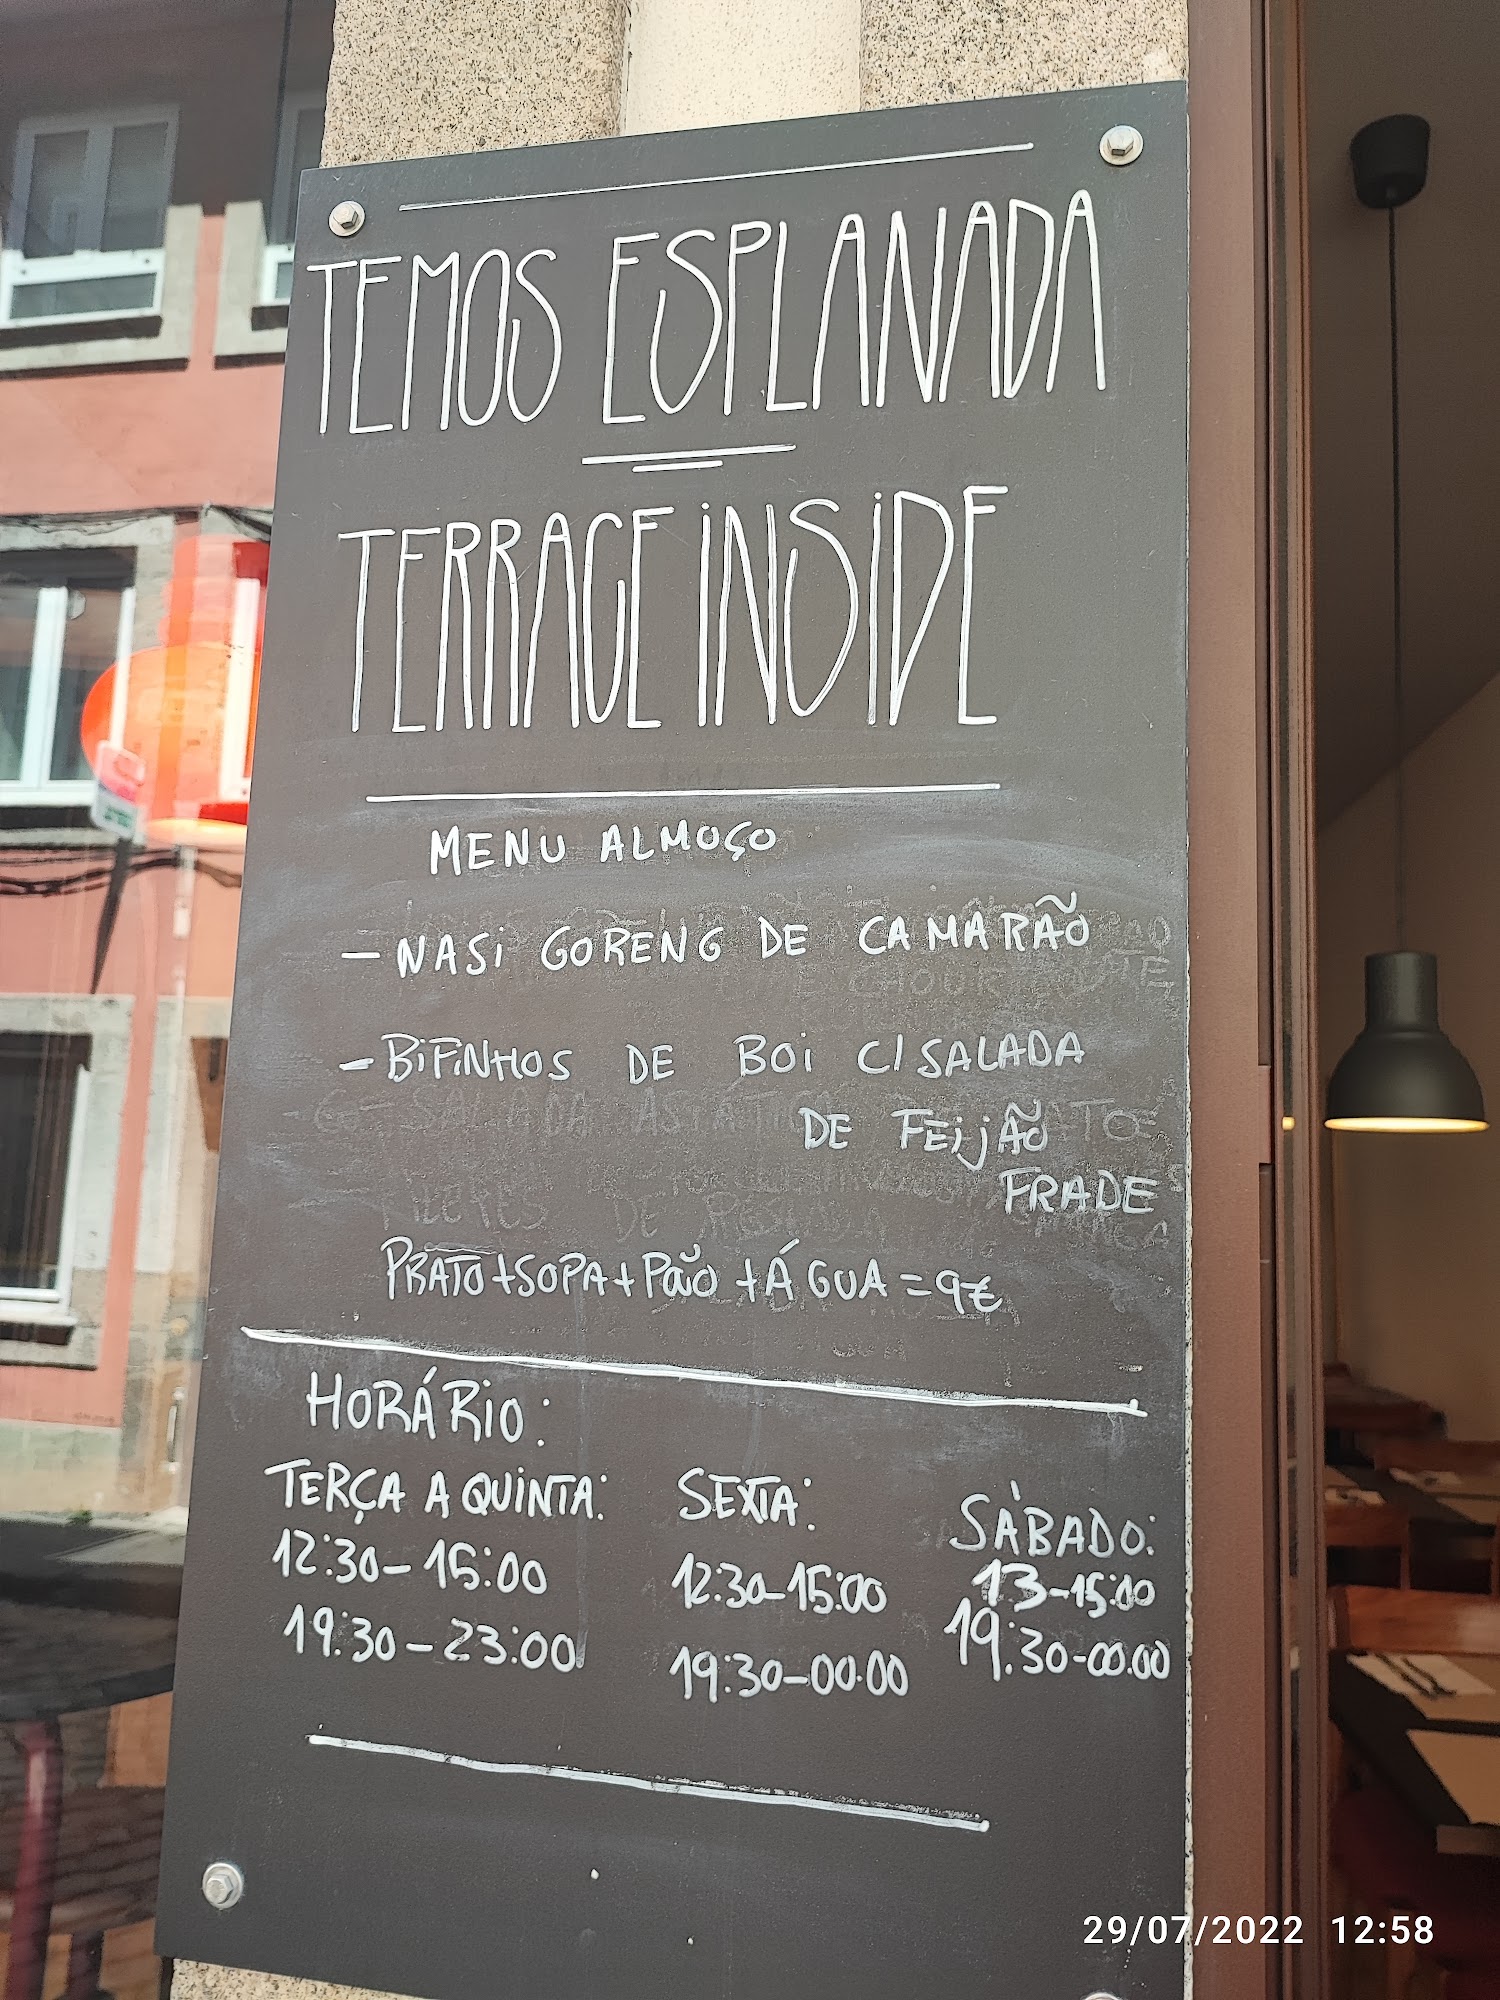 TEMOS ESPLANADA
TERRACE INSIDE
MENU ALMOÇO
- NASI GORENG DE CAMARÃO
- BIFINHOS DE BOI C/ SALADA
DE FEIJÃO
FRADE
PRATO+SOPA+PÃO+ÁGUA=9€
HORÁRIO:
TERÇA A QUINTA:
12:30-15:00
19:30-23:00
SEXTA:
12:30-15:00
19:30-00:00
SÀBADO:
13-15:00
19:30-00:00
29/07/2022 12:58